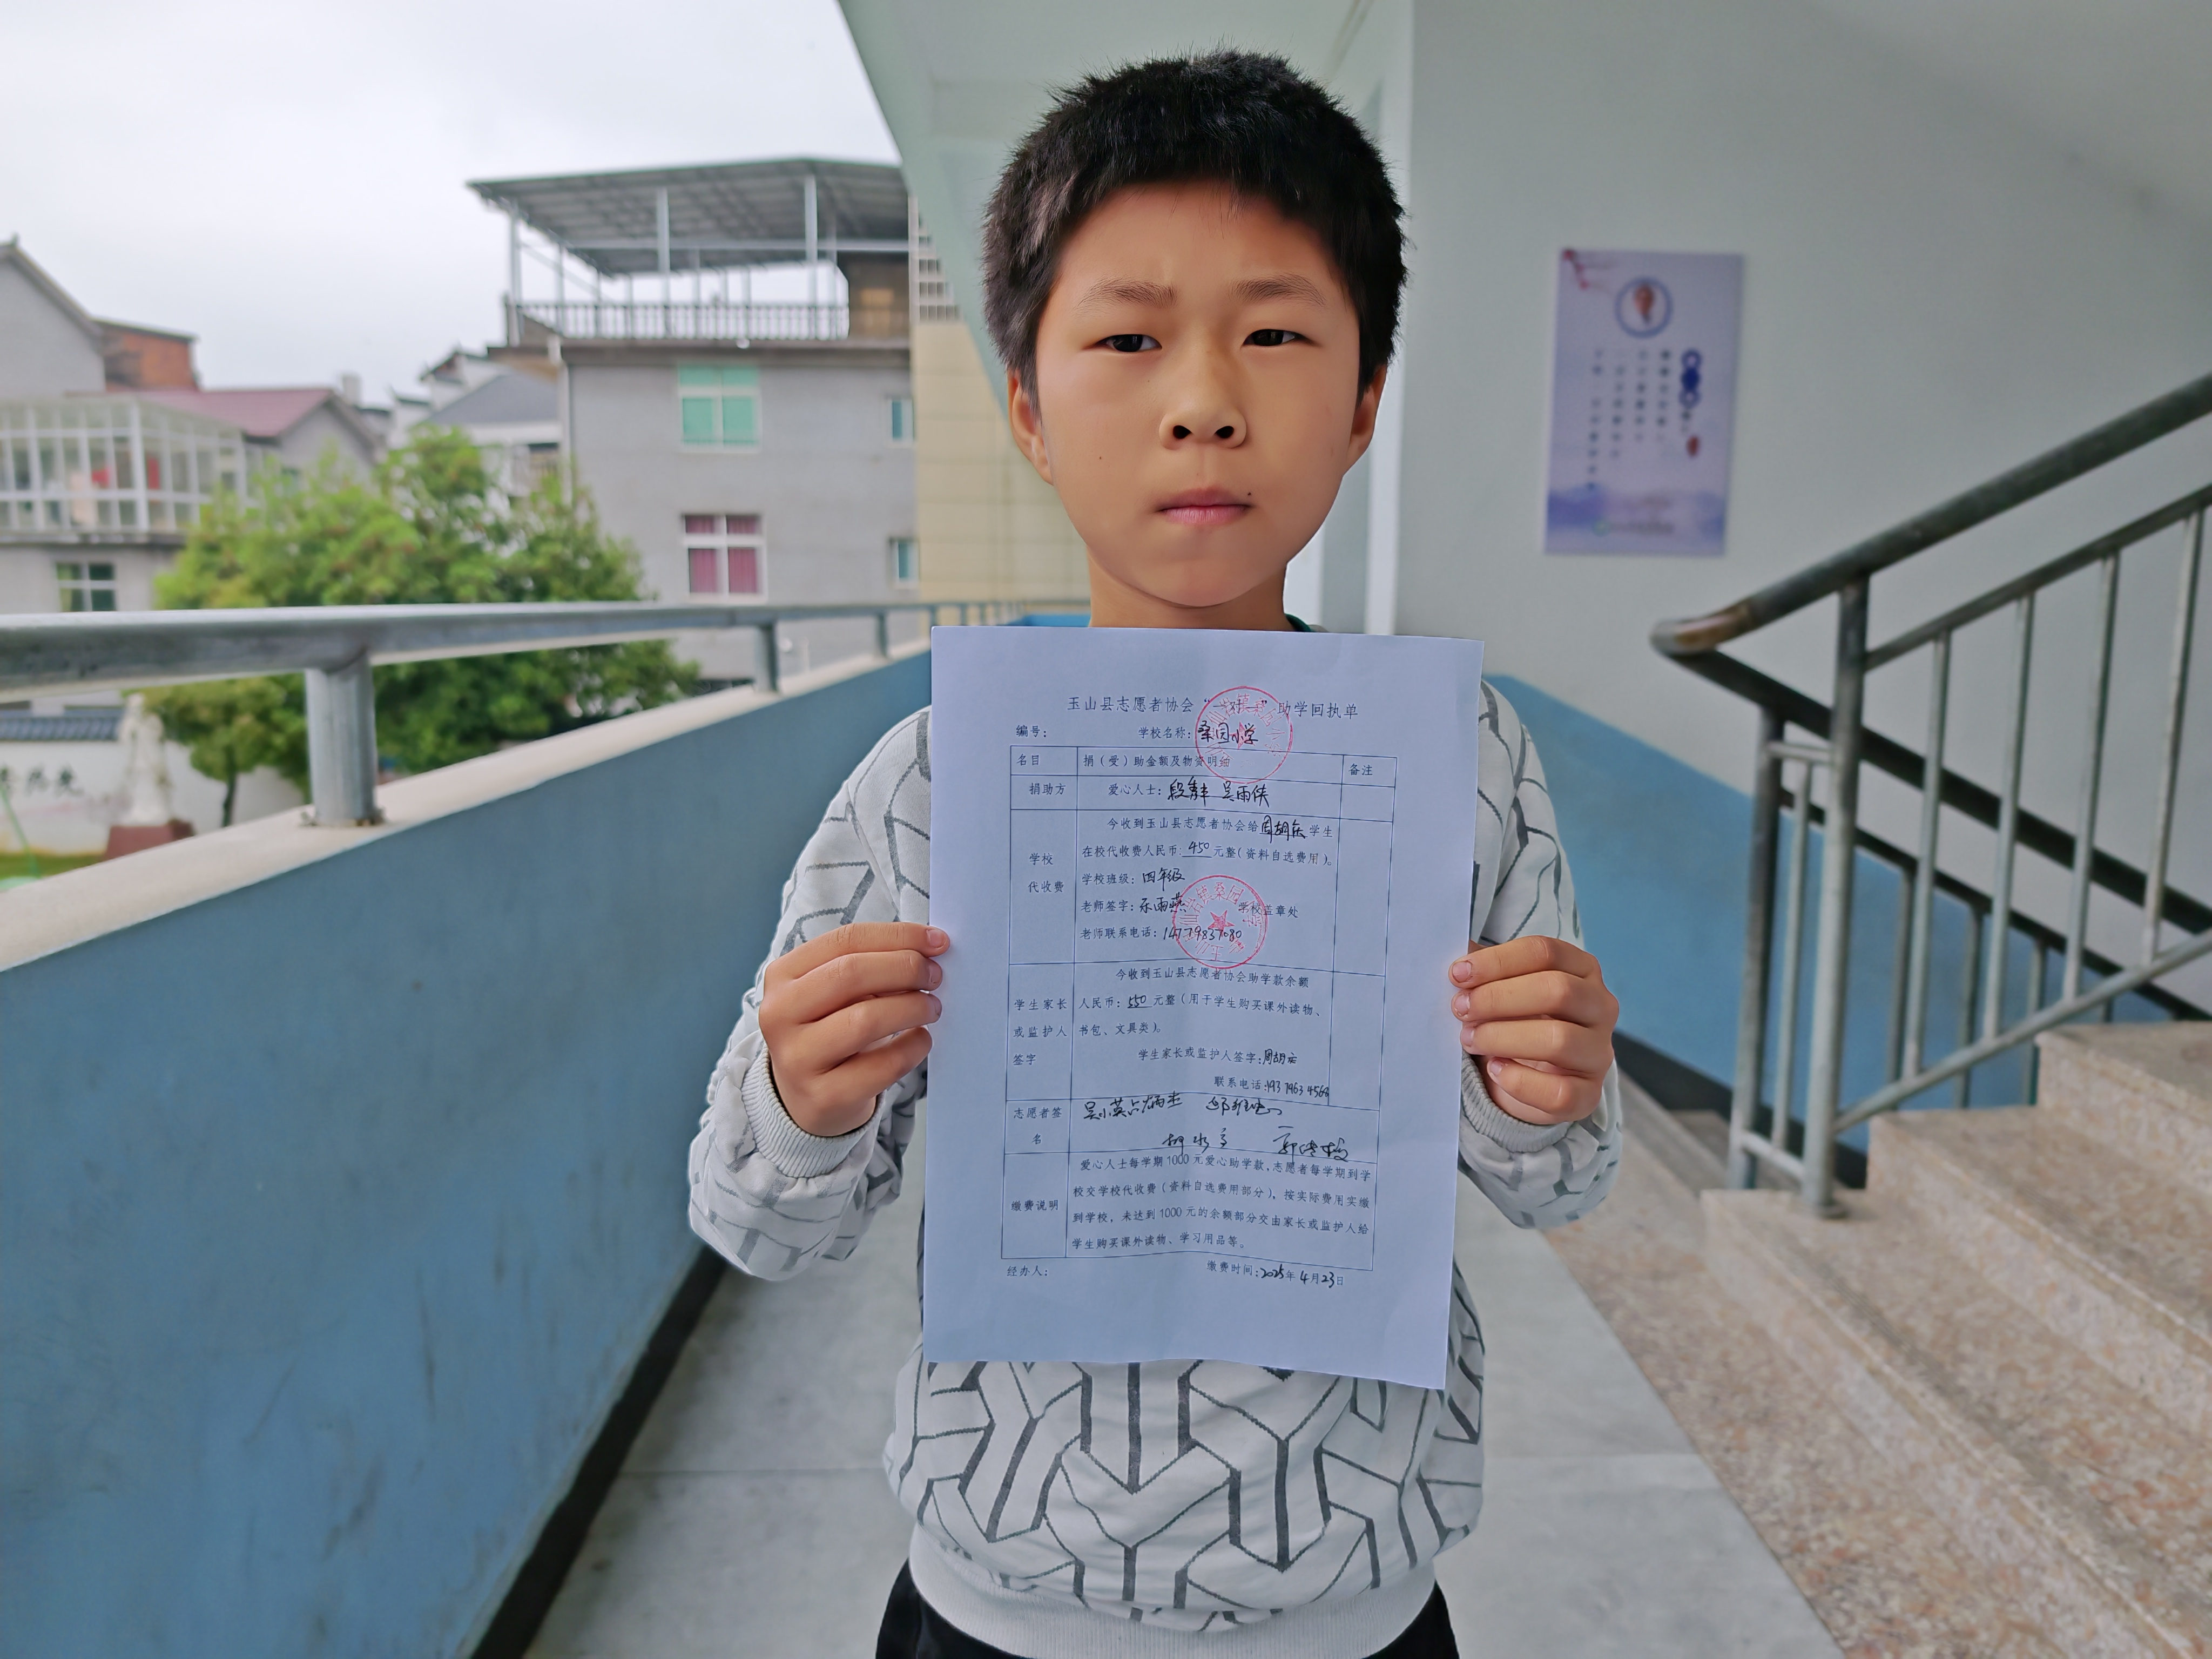 玉山县志愿者协会“一对一”助学回执单
编号： 学校名称：桑园小学
名目 捐（受）助金额及物资明细 备注
捐助方 爱心人士：段群丰 吴雨侠
今收到玉山县志愿者协会给周胡庆学生
在校代收费人民币：450元整（资料自选费用）。
学校
代收费
学校班级：四年级
老师签字：雨燕 学校盖章处
老师联系电话：14779837080
今收到玉山县志愿者协会助学款余额
人民币：550元整（用于学生购买课外读物、
书包、文具类）。
学生家长
或监护人
签字
学生家长或监护人签字：周胡庆
联系电话：19379634568
志愿者签
名
吴小英
缴费说明
爱心人士每学期1000元爱心助学款，志愿者每学期到学
校交学校代收费（资料自选费用部分），按实际费用实缴
到学校，未达到1000元的余额部分交由家长或监护人给
学生购买课外读物、学习用品等。
经办人： 缴费时间：2025年4月23日